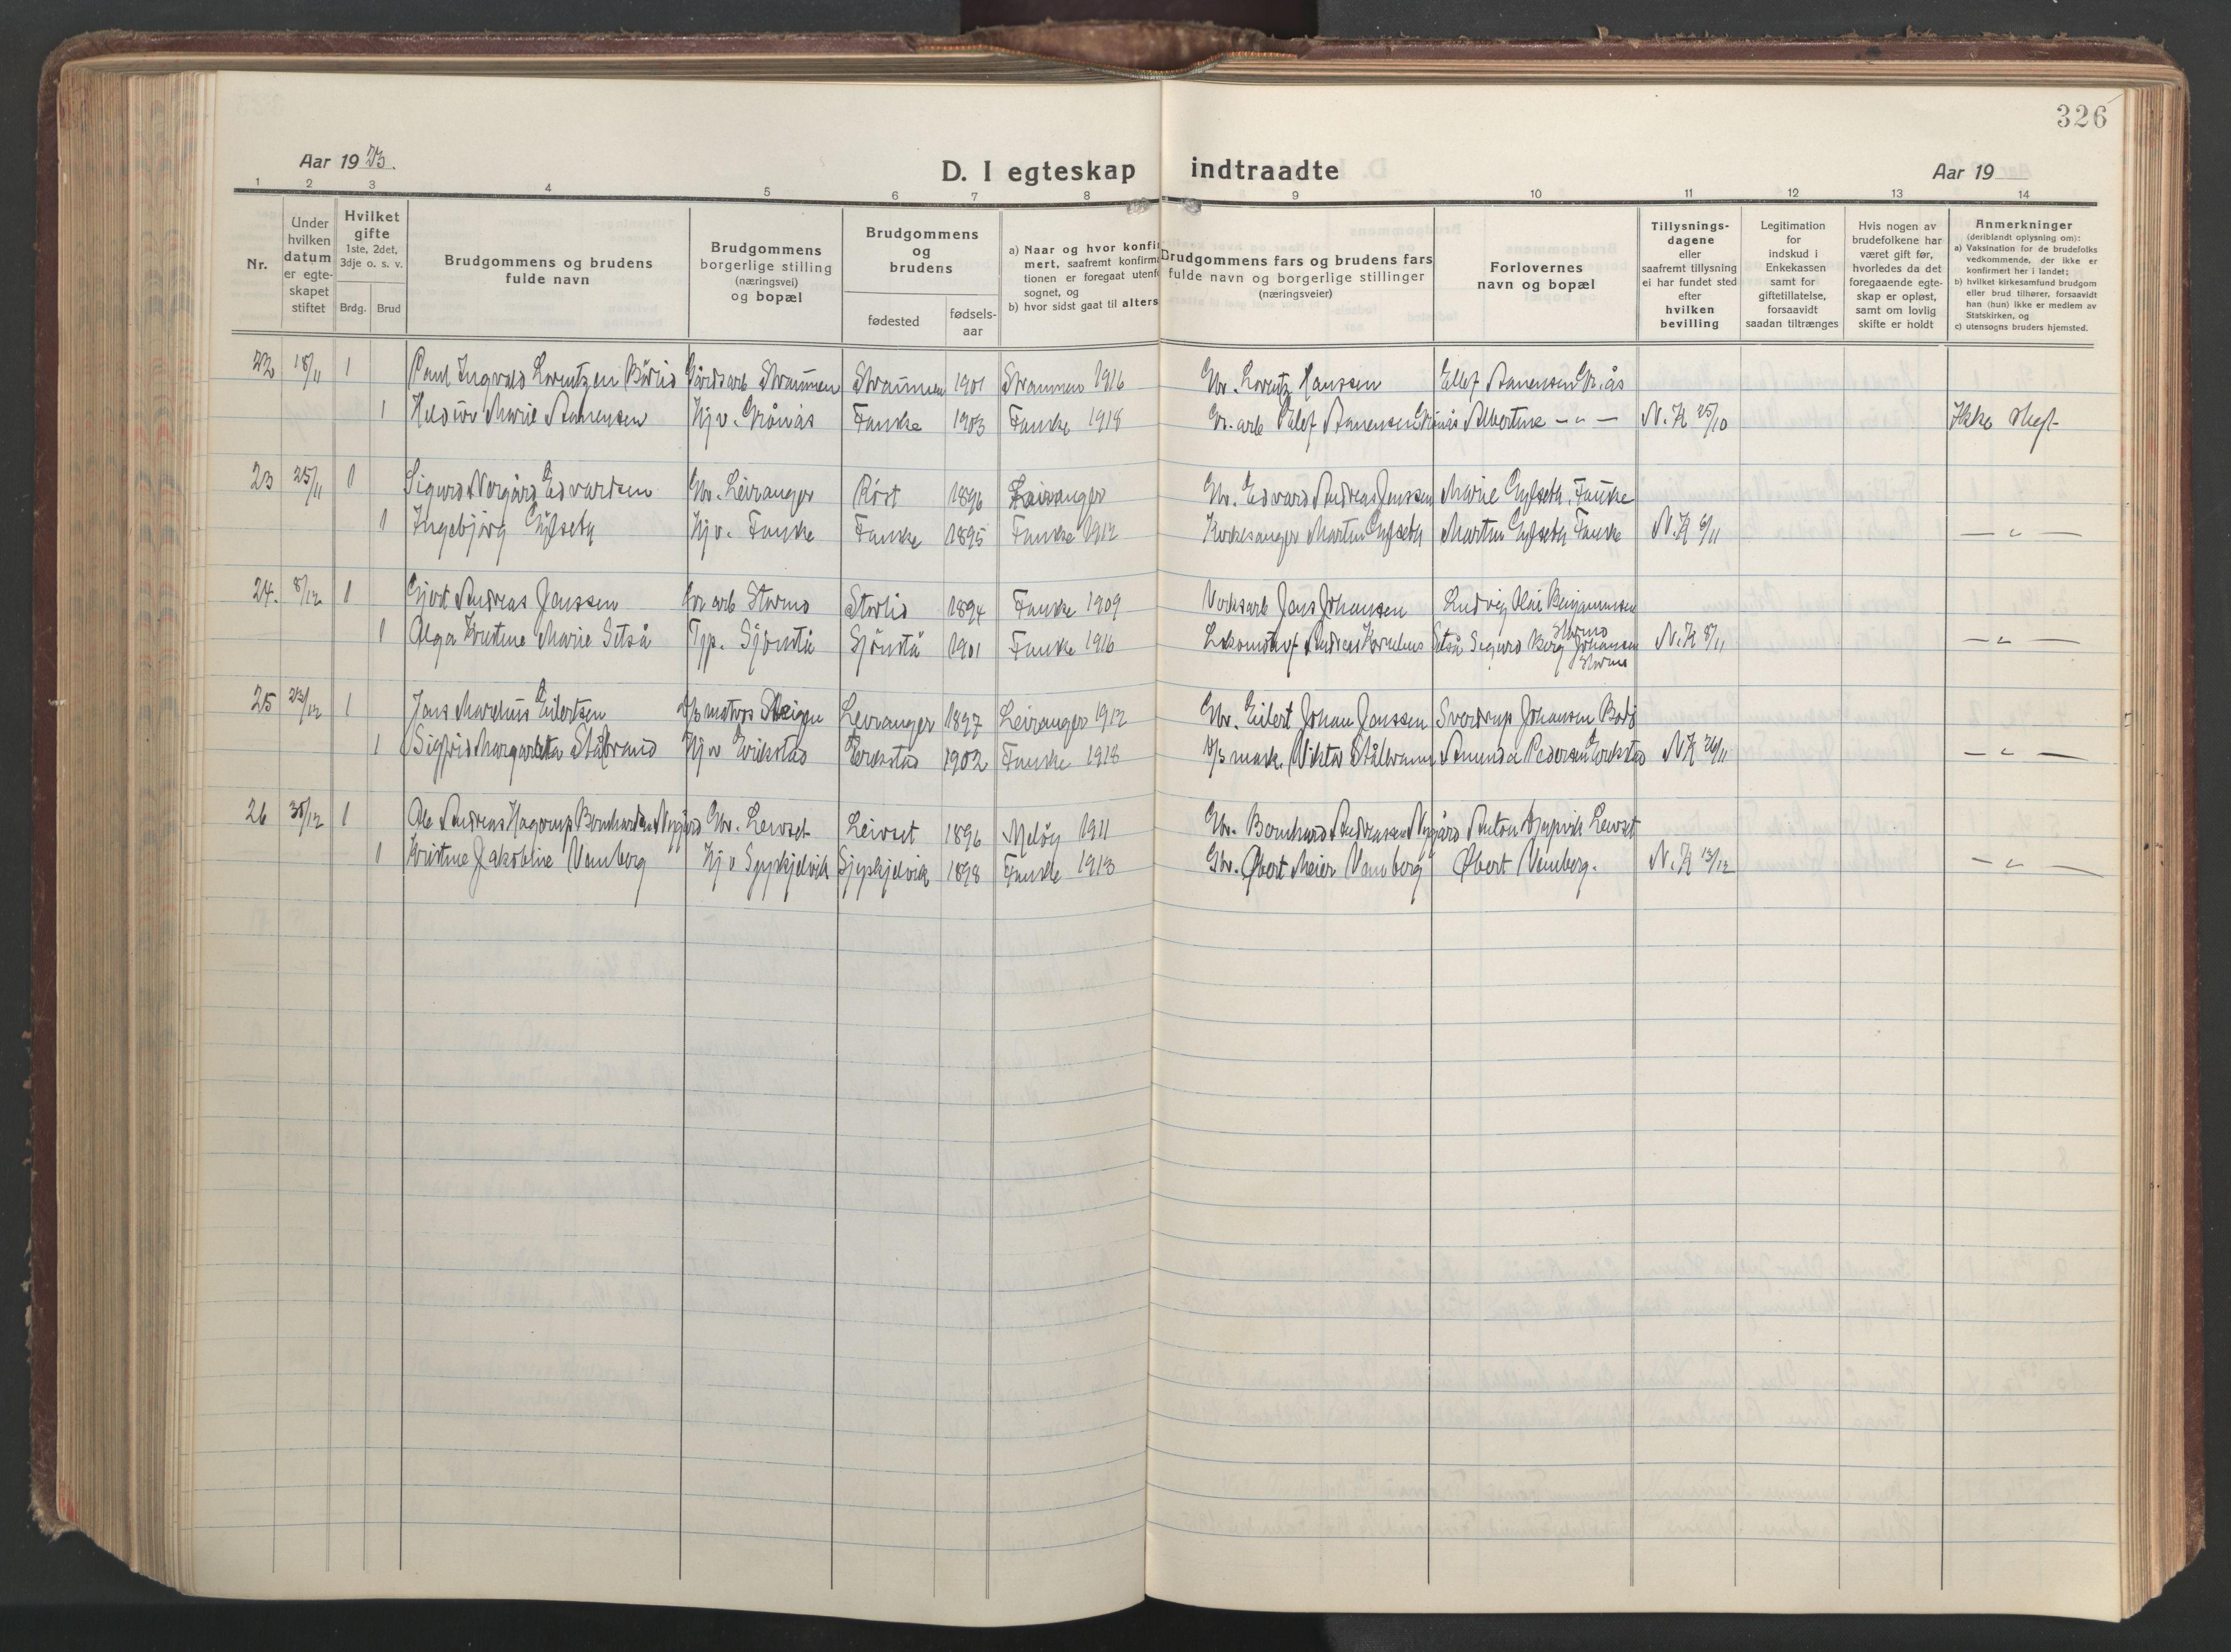 326
Aar 1923.
D. I egteskap indtraadte
Aar 19
1 2 3 4 5 6 7 8 9 10 11 12 13 14
Nr.
Under hvilken datum er egteskapet stiftet
Hvilket gifte 1ste, 2det, 3dje o. s. v.
Brdg. Brud
Brudgommens og brudens fulde navn
Brudgommens borgerlige stilling (næringsvei) og bopæl
Brudgommens og brudens
fødested
fødsels-aar
a) Naar og hvor konfir
mert, saafremt konfirma
tionen er foregaat utenfo
sognet, og
b) hvor sidst gaat til alters
Brudgommens fars og brudens fars
fulde navn og borgerlige stillinger
(næringsveier)
Forlovernes navn og bopæl
Tillysnings-dagene eller saafremt tillysning ei har fundet sted efter hvilken bevilling
Legitimation for indskud i Enkekassen samt for giftetillatelse, forsaavidt saadan tiltrænges
Hvis nogen av brudefolkene har været gift før, hvorledes da det foregaaende egte-skap er opløst, samt om lovlig skifte er holdt
Anmerkninger
(deriblandt oplysning om):
a) Vaksination for de brudefolks vedkommende, der ikke er konfirmert her i landet;
b) hvilket kirkesamfund brudgom eller brud tilhører, forsaavidt han (hun) ikke er medlem av Statskirken, og
c) utensogns bruders hjemsted.
22 18/11 1 Paul Ingvald Lorentzen Börlid Gårdsarb Straumen Straumen 1901 Straumen 1916 Gbr. Lorentz Hanssen Ellef Amensen
1 Marie Amensen Hj v. Fauske 1903 Fauske 1918 Albertine -"- N.K 25/10 Ikke slegt
23 25/11 1 Sigurd Norgård Edvardsen Gbr. Leiranger Röst 1896 Leiranger Gbr. Edvard Andreas Jenssen Marie Gylseth, Fauske
1 Ingebjørg Gylseth Hj v. Fauske Fauske 1895 Fauske 1912 Kirkesanger Martin Gylseth Martin Gylseth Fauske N.K 6/11 -"-
24. 8/12 1 Andreas Jenssen Stormo Storlid 1894 Fauske 1909 Jens Johansen Ludvig Olai Benjaminsen Stormo
1 Olga Kristine Marie Setså Tjp. Sjönstå Sjönstå 1901 Fauske 1916 Andreas Kornelius Setså Sigurd Berg Johansen Stormo N.K 8/11 -"-
25 23/12 1 Jens Markus Eilertsen matros Steigen Leiranger 1897 Leiranger 1912 Gbr. Eilert Johan Jenssen Sverdrup Johansen Bodö
1 Sigfrid Margareta Stålbrand Hj v Erikstad Erikstad 1902 Fauske 1918 Viktor Stålbrand Amunda Pedersen Erikstad N.K 26/11 -"-
26 30/12 1 Ole Andreas Hagerup Bernhardsen Nygård Gbr. Leivset Leivset 1896 Meløy 1911 Gbr. Bernhard Andreassen Nygård Anton Leivset
1 Kristine Jakobine Venberg Hj v 1898 Fauske 1913 Gbr. Øbert Meier Venberg Øbert Venberg. N.K 13/12 -"-